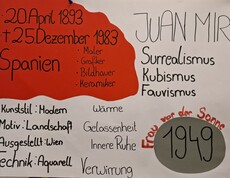 20 April 1893
+ 25 Dezember 1983
Spanien
- Maler
- Grafiker
- Bildhauer
- Keramiker
JUAN MIR
Surrealismus
Kubismus
Fauvismus
Kunststil: Modern
Motiv: Landschaft
Ausgestellt: Wien
Technik: Aquarell
Wärme
Gelassenheit
Innere Ruhe
Verwirrung
Frau vor der Sonne
1949